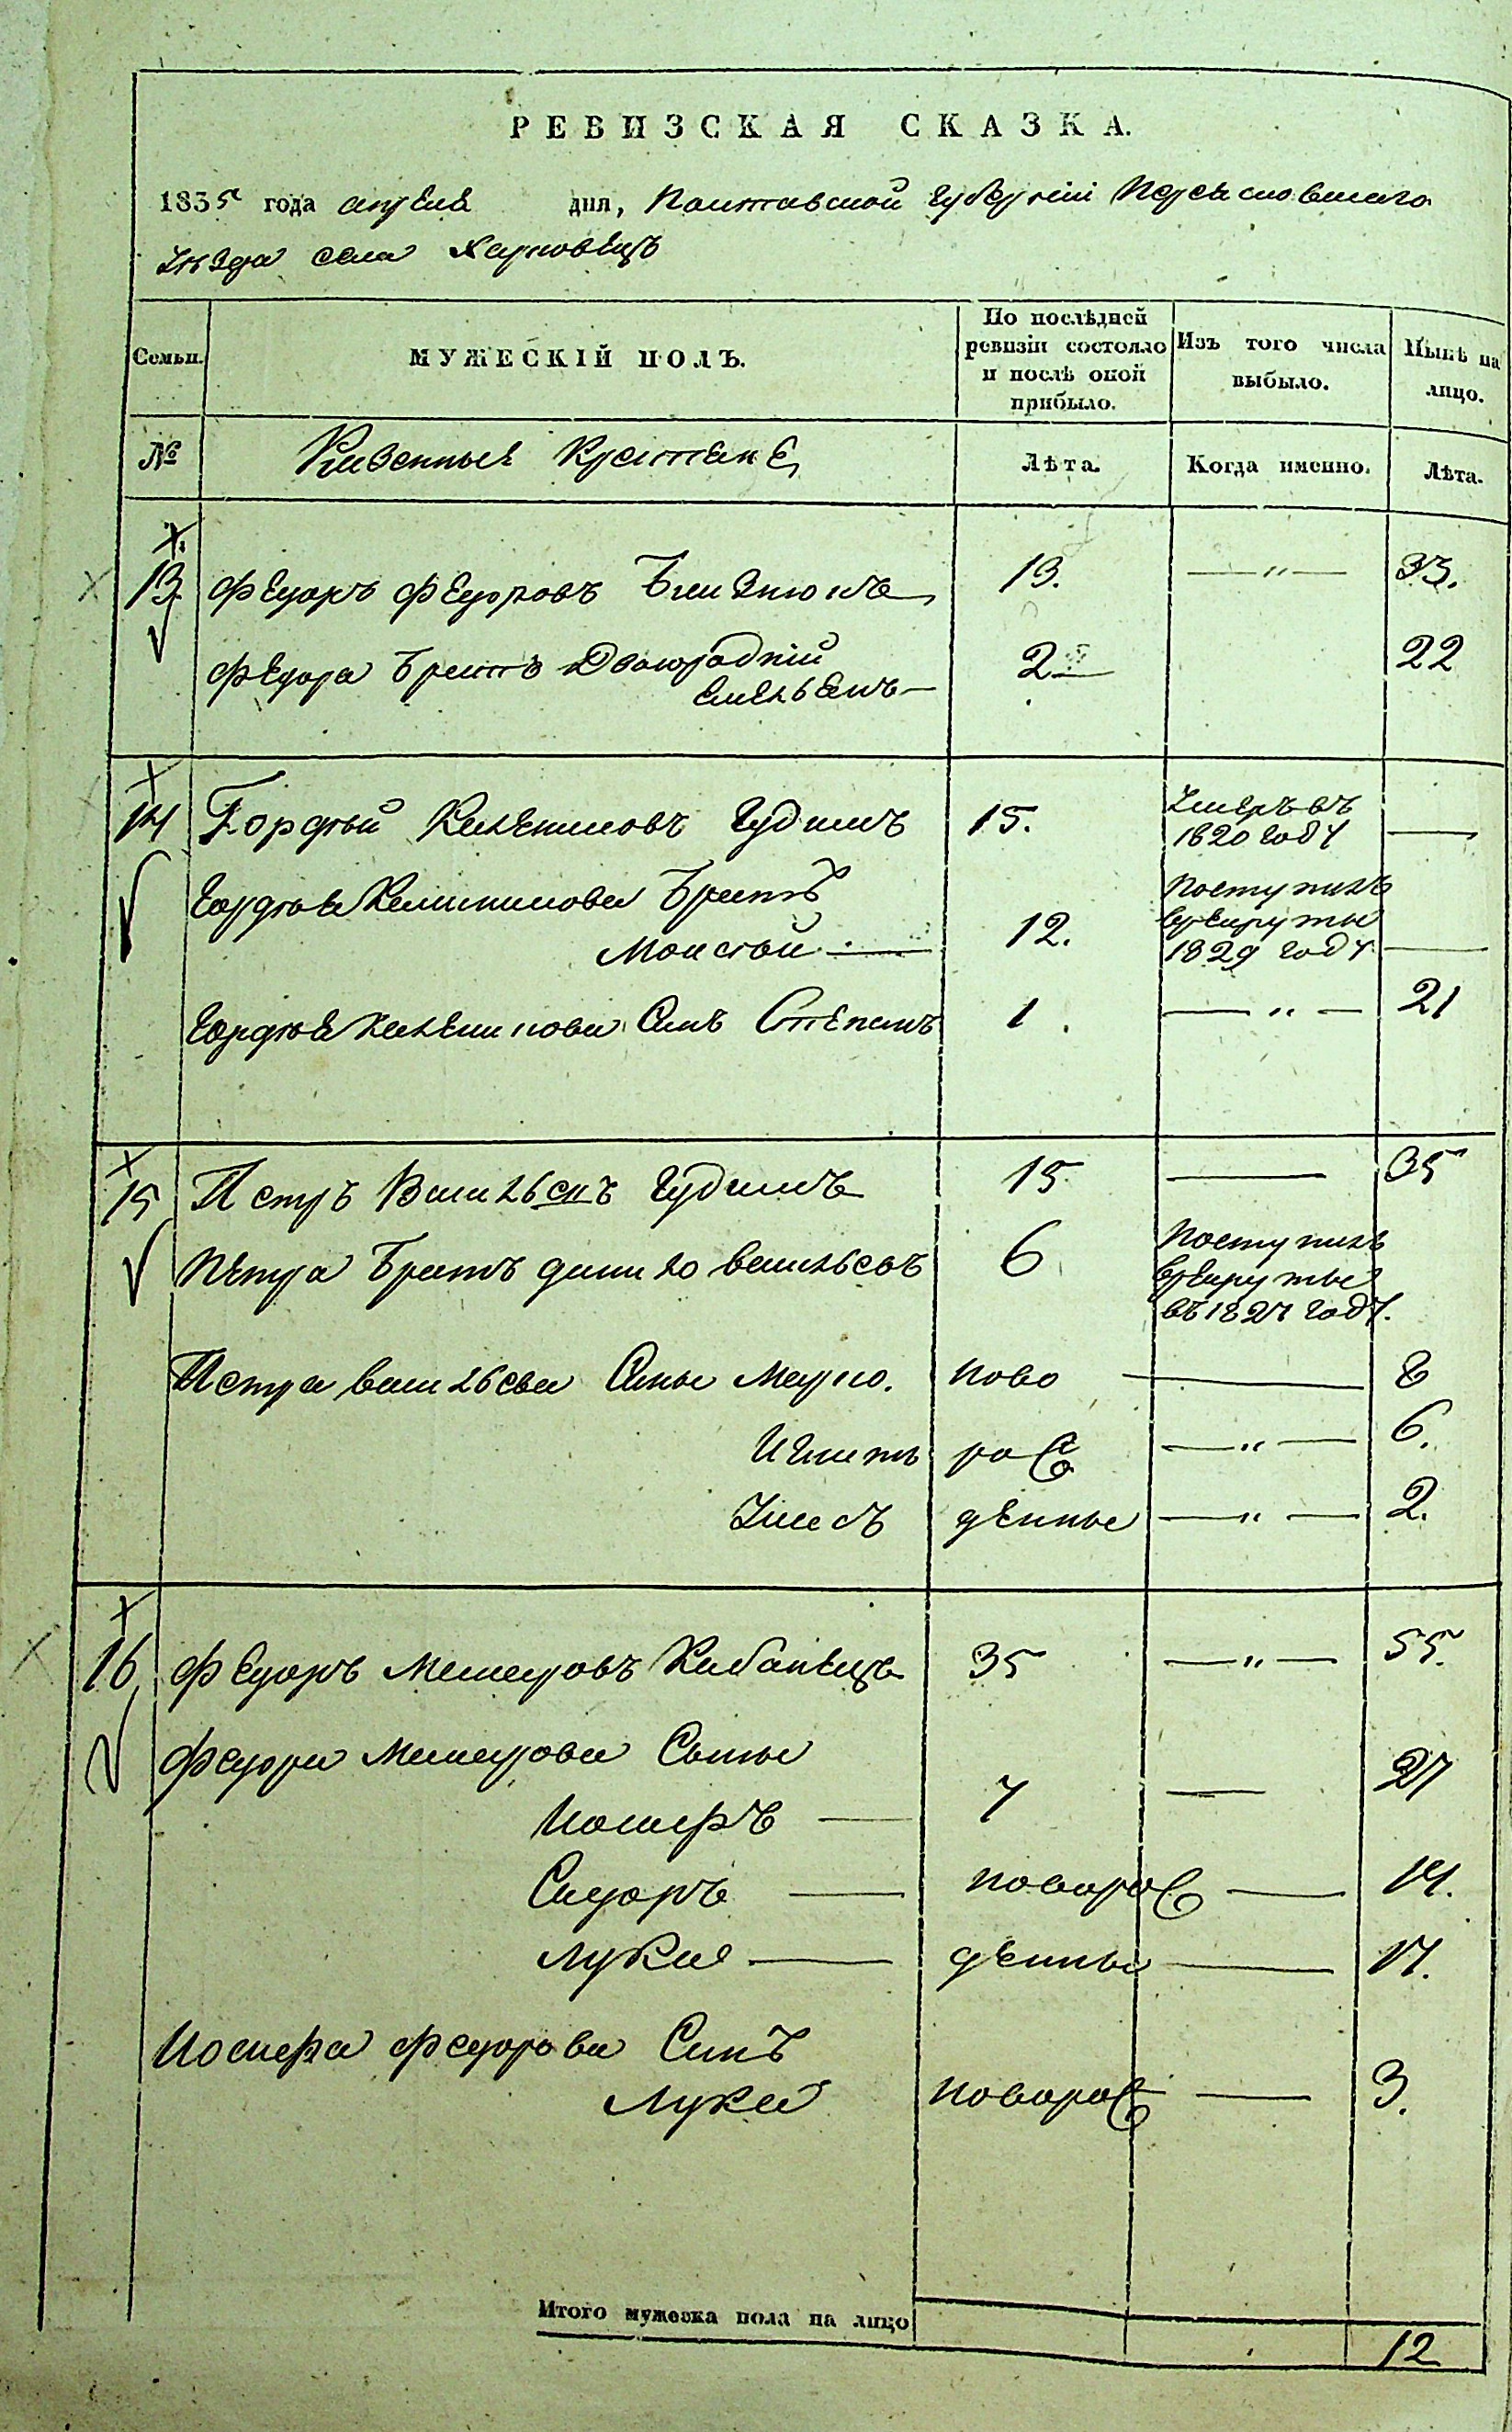 РЕВИЗСКАЯ СКАЗКА.
1835 года апреля дня, Полтавской Губерніи Переяславскаго
Уезда села Харковецъ
Семьи.
МУЖЕСКІЙ ПОЛЪ.
По послѣдней ревизіи состояло и послѣ оной прибыло.
Изъ того числа выбыло.
Нынѣ на лицо.
№
Казенные Крестяне
Лѣта.
Когда именно.
Лѣта.
13. Федоръ Федоровъ 13. —"— 33.
Федора Братъ Двоюродній 2 22
Емельянъ —
14 Гордѣй Калениковъ Гудимъ 15. Умеръ въ 1820 году —
Гордѣя Каленикова Братъ
Моисѣй — 12. Поступилъ врекруты 1829 году —
Гордѣя Каленикова Синъ Степанъ 1. —"— 21
15 Петръ Васильевъ Гудимъ 15 — 35
Петра Братъ Данило Васильевъ 6 Поступилъ врекруты въ 1827 году.
Петра Васильева Сины Марко. ново — 8
Игнатъ рож —"— 6.
Уласъ денные —"— 2.
16 Федоръ Макаровъ Кабанецъ 35 —"— 55.
Федора Макарова Сыны
Иосифъ — 7 — 27
Сидоръ — новорож — 14.
Лукия — денные — 17.
Иосифа Федорова Синъ
Лука новорож — 3.
Итого мужеска пола на лицо 12